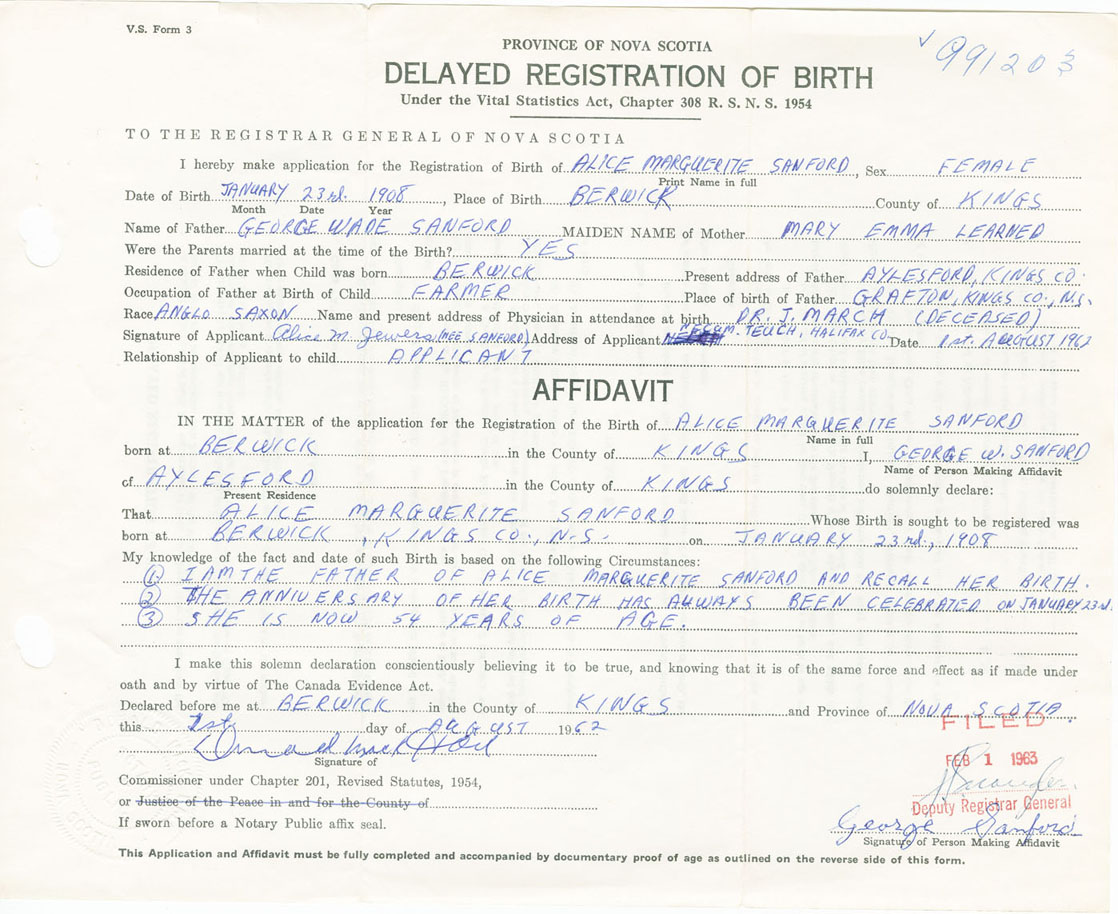 V.S. Form 3
991203
PROVINCE OF NOVA SCOTIA
DELAYED REGISTRATION OF BIRTH
Under the Vital Statistics Act, Chapter 308 R. S. N. S. 1954
TO THE REGISTRAR GENERAL OF NOVA SCOTIA
I hereby make application for the Registration of Birth of ALICE MARGUERITE SANFORD, Sex FEMALE
Print Name in full
Date of Birth JANUARY 23rd. 1908, Place of Birth BERWICK County of KINGS
Month Date Year
Name of Father GEORGE WADE SANFORD MAIDEN NAME of Mother MARY EMMA LEARNED
Were the Parents married at the time of the Birth? YES
Residence of Father when Child was born BERWICK Present address of Father AYLESFORD, KINGS CO.
Occupation of Father at Birth of Child FARMER Place of birth of Father GRAFTON, KINGS CO., N.S.
Race ANGLO SAXON Name and present address of Physician in attendance at birth DR. J. MARCH (DECEASED)
Signature of Applicant Alice M. Jewers (NEE SANFORD) Address of Applicant NECUM TEUCH, HALIFAX CO. Date 1st. AUGUST 1962
Relationship of Applicant to child APPLICANT
AFFIDAVIT
IN THE MATTER of the application for the Registration of the Birth of ALICE MARGUERITE SANFORD
Name in full
born at BERWICK in the County of KINGS I, GEORGE W. SANFORD
Name of Person Making Affidavit
of AYLESFORD in the County of KINGS do solemnly declare:
Present Residence
That ALICE MARGUERITE SANFORD Whose Birth is sought to be registered was
born at BERWICK, KINGS CO., N.S. on JANUARY 23rd., 1908
My knowledge of the fact and date of such Birth is based on the following Circumstances:
(1) I AM THE FATHER OF ALICE MARGUERITE SANFORD AND RECALL HER BIRTH.
(2) THE ANNIVERSARY OF HER BIRTH HAS ALWAYS BEEN CELEBRATED ON JANUARY 23rd.
(3) SHE IS NOW 54 YEARS OF AGE.
I make this solemn declaration conscientiously believing it to be true, and knowing that it is of the same force and effect as if made under
oath and by virtue of The Canada Evidence Act.
Declared before me at BERWICK in the County of KINGS and Province of NOVA SCOTIA.
this 1st day of AUGUST 1962
FILED
Signature of
FEB 1 1963
Commissioner under Chapter 201, Revised Statutes, 1954,
or Justice of the Peace in and for the County of
Deputy Registrar General
If sworn before a Notary Public affix seal.
George Sanford
Signature of Person Making Affidavit
This Application and Affidavit must be fully completed and accompanied by documentary proof of age as outlined on the reverse side of this form.